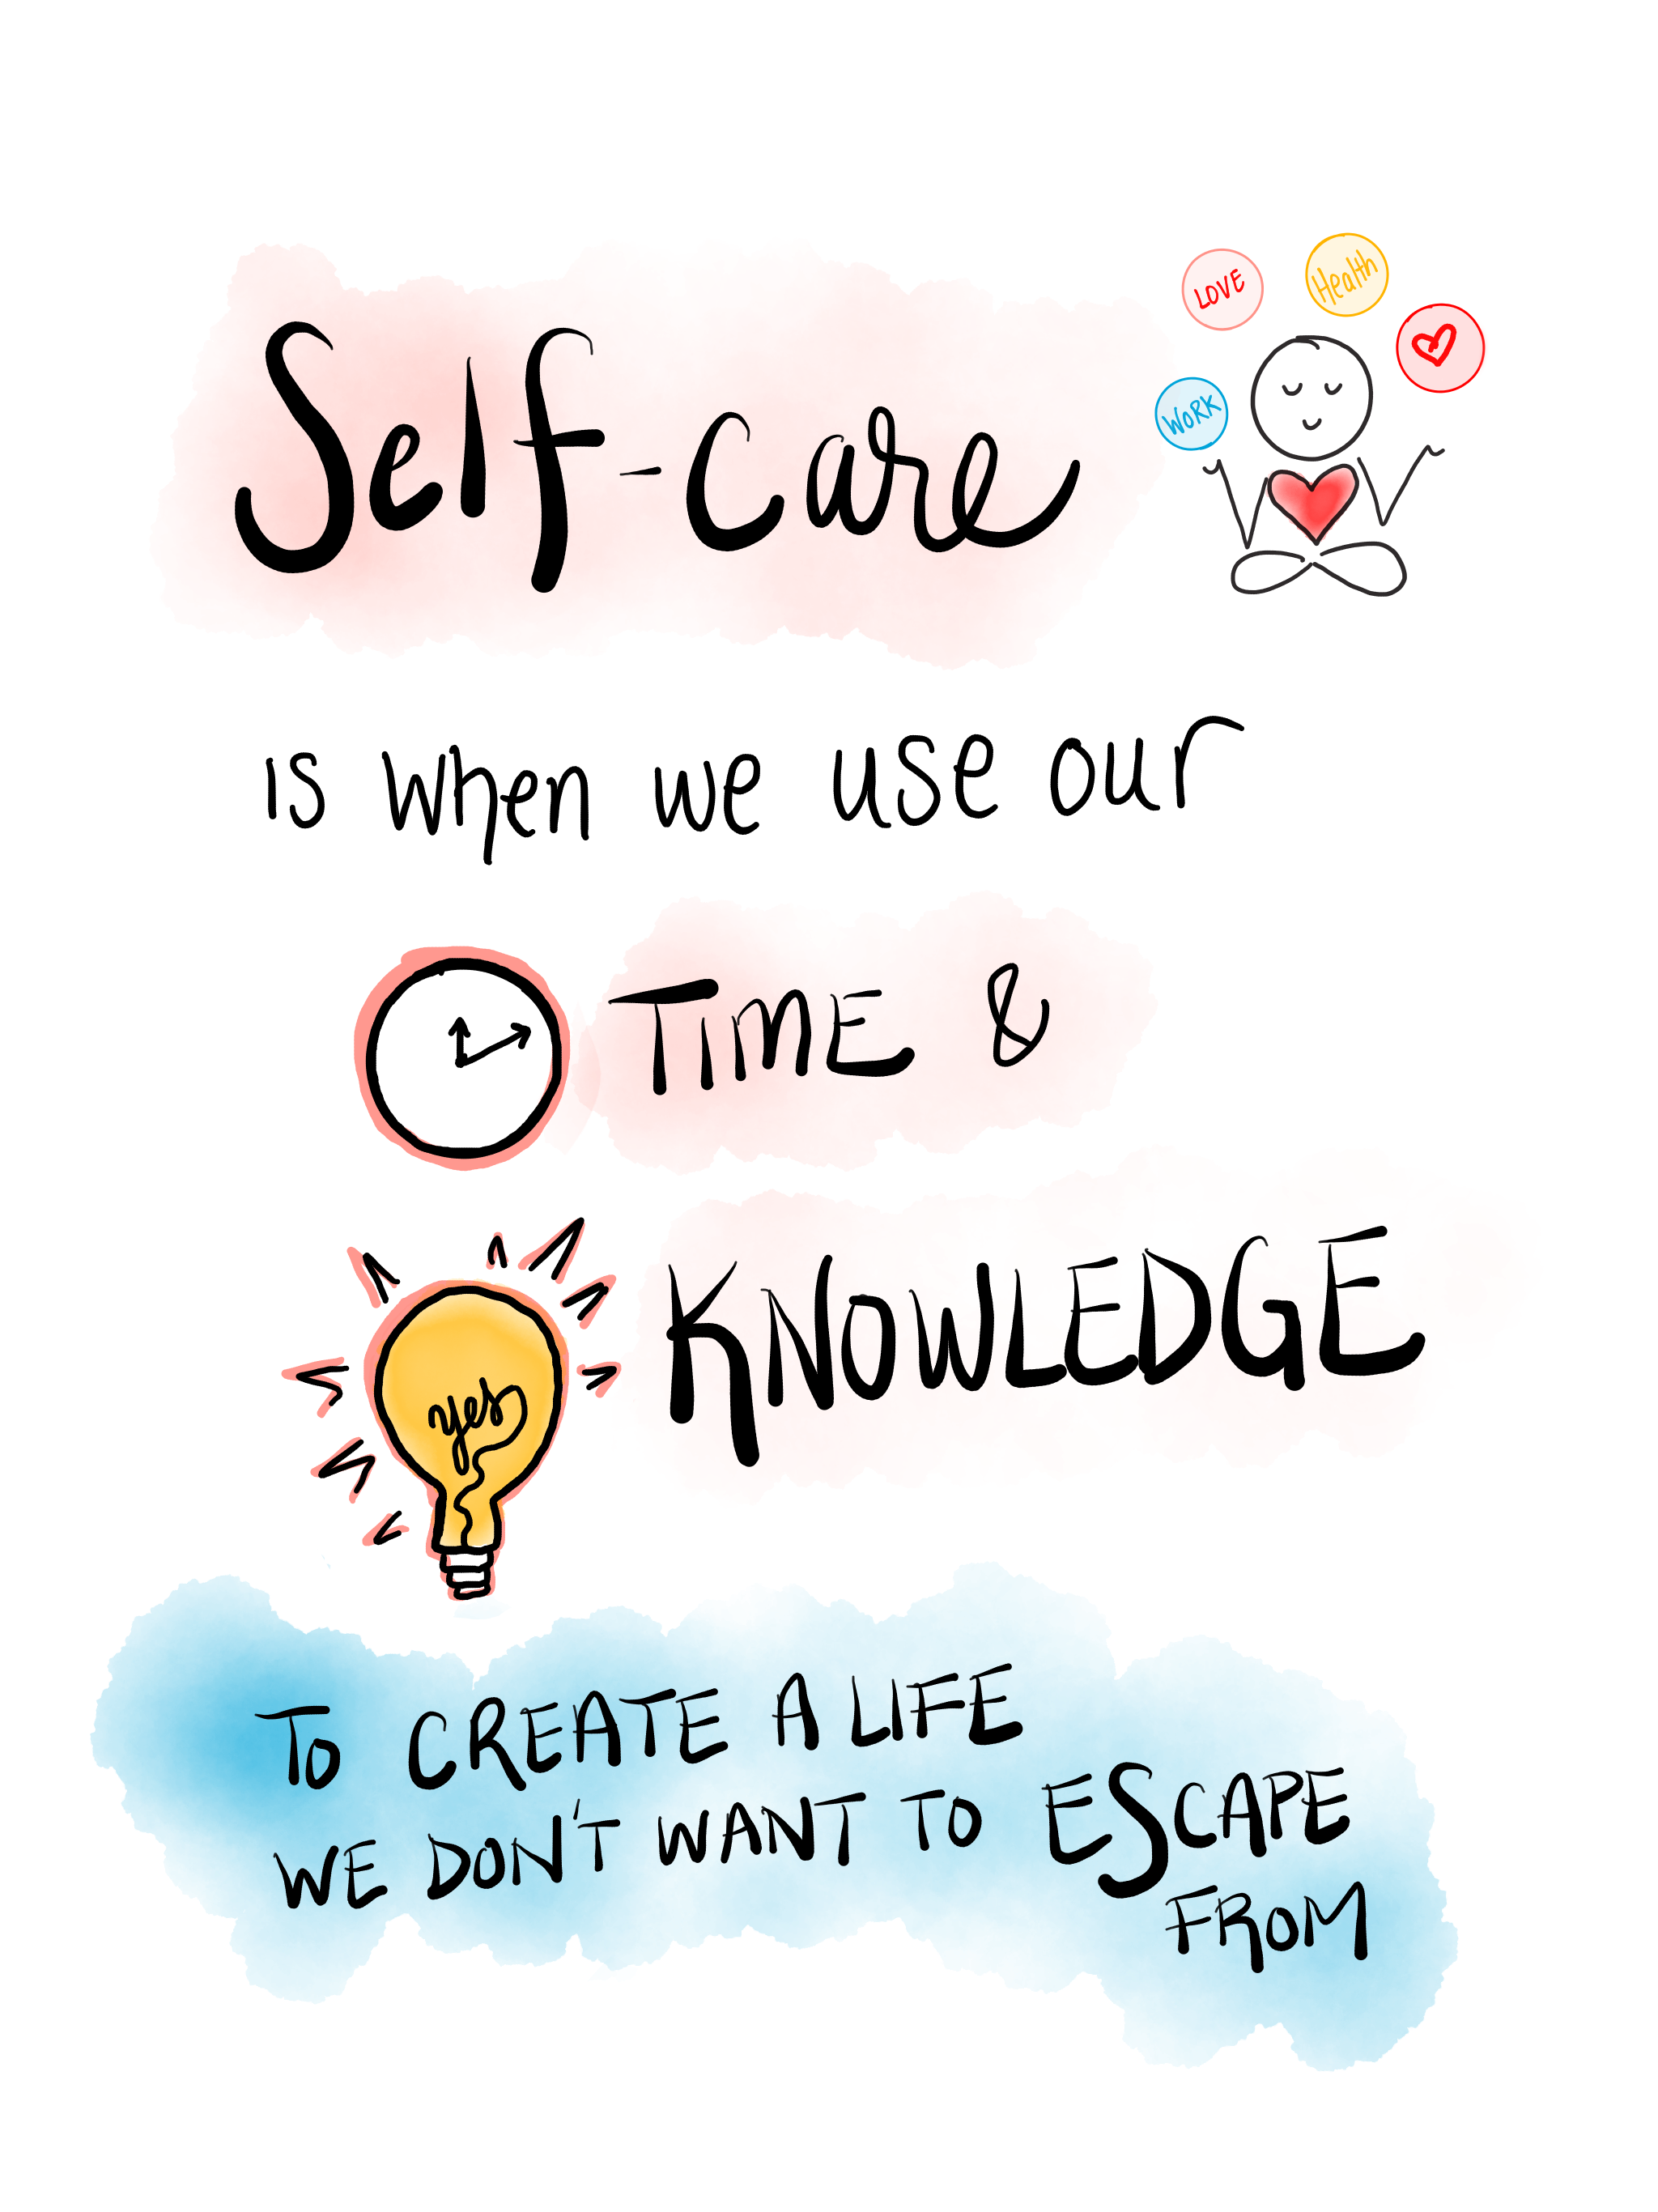 LOVE
Health
WORK
Self-care
is when we use our
TIME &
KNOWLEDGE
yes
TO CREATE A LIFE
WE DON'T WANT TO ESCAPE
FROM